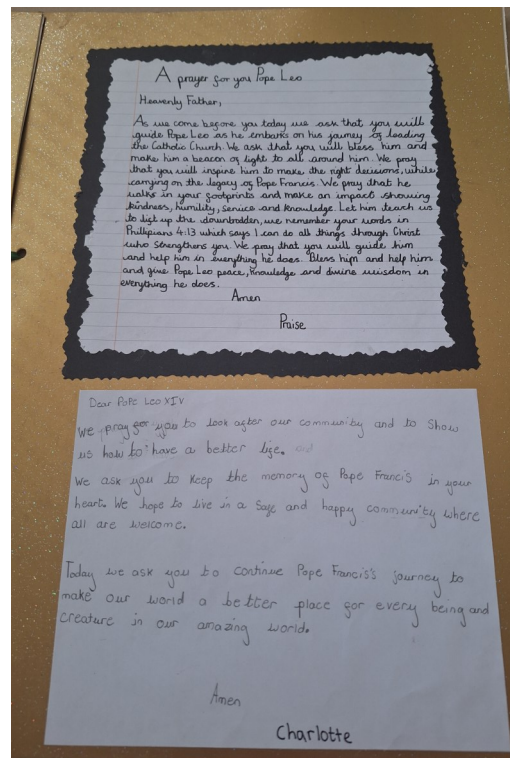 A prayer for you Pope Leo
Heavenly Father,
As we come before you today we ask that you will
guide Pope Leo as he embarks on his journey of leading
the Catholic Church. We ask that you will bless him and
make him a beacon of light to all around him. We pray
that you will inspire him to make the right decisions, while
carrying on the legacy of Pope Francis. We pray that he
walks in your footprints and make an impact showing
kindness, humility, service and knowledge. Let him teach us
to light up the downtrodden, we remember your words in
Phillipians 4:13 which says I can do all things through Christ
who strengthens you. We pray that you will guide him
and help him in everything he does. Bless him and help him
and give Pope Leo peace, knowledge and divine wisdom in
everything he does.
Amen
Praise
Dear Pope Leo XIV
We pray for you to look after our community and to Show
us how to have a better life.
We ask you to keep the memory of Pope Francis in your
heart. We hope to live in a safe and happy community where
all are welcome.
Today we ask you to continue Pope Francis's journey to
make our world a better place for every being and
creature in our amazing world.
Amen
Charlotte